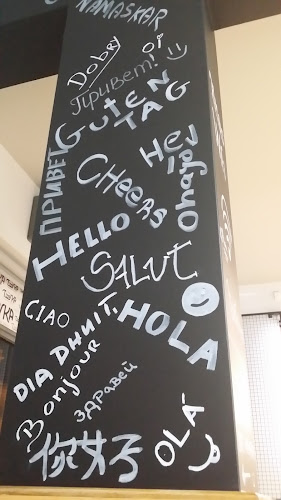 NAMASKAR
Dobry
Oi
Привет!
GUTEN
TAG
ПРИВЕТ
Hei
Ohayo
CHEERS
HELLO
SALUT
CIAO
HOLA
DIA DHUIT
Bonjour
здравей
OLÁ
你好